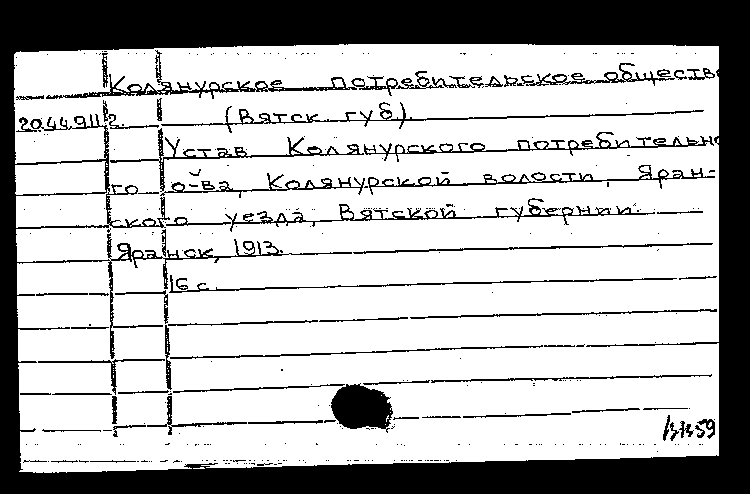 Колянурское потребительское общество
20.44.911.2. (Вятск. губ).
Устав Колянурского потребительно
го о-ва, Колянурской волости, Яран-
ского уезда, Вятской губернии.
Яранск, 1913.
16 с.